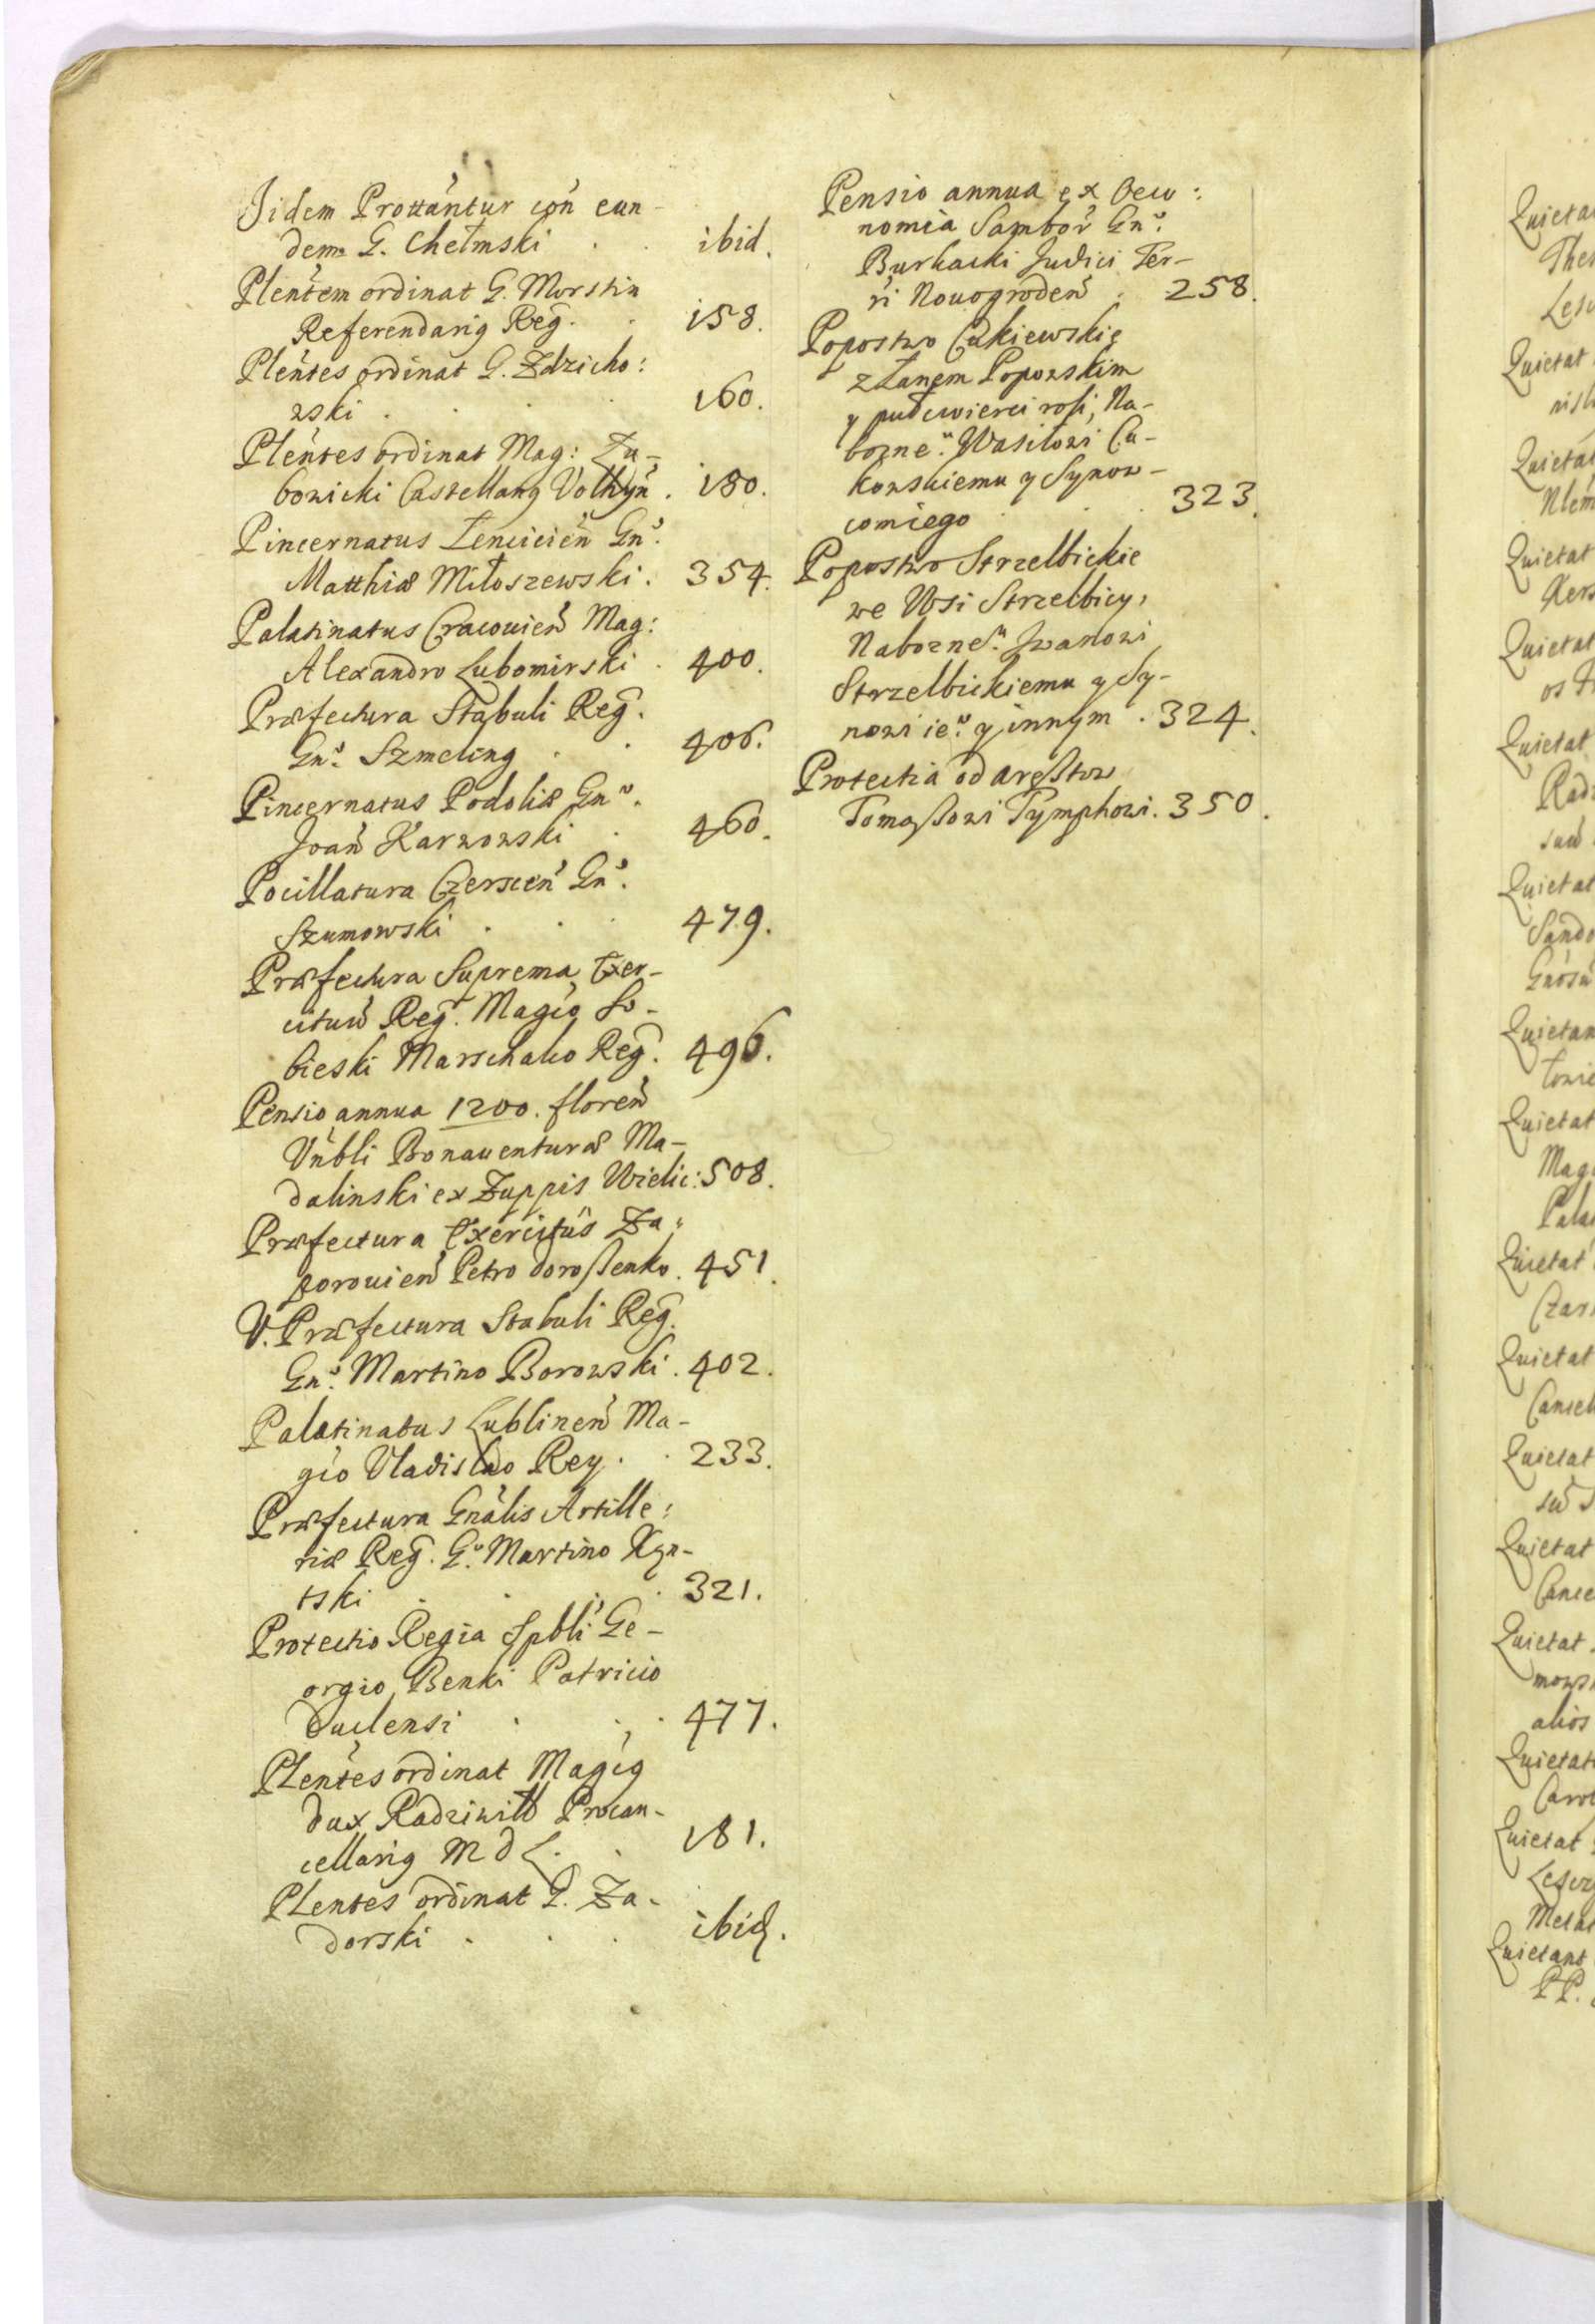 Jidem Prottantur con eun-
dem G. Chełmski . . ibid.
Plentem ordinat G. Morstin
Referendarig Reg. . 158.
Plentes ordinat G. Zdzicho:
wski . . . . 160.
Plentes ordinat Mag:
bowicki Castellang Volhyn . 180.
Pincernatus Łencicien Gn°.
Matthiæ Miłoszewski. 354.
Palatinatus Cracouien Mag:
Alexandro Lubomirski . 400.
Præfectura Stabuli Reg.
Gn°. Szmeling . . 406.
Pincernatus Podoliæ Gn°.
Joan Karwowski . 460.
Pocillatura Czerscen Gn°.
Szumowski . . . 479.
Præfectura Suprema Exer-
cituu Reg. Magco So-
bieski Marschalco Reg. 496.
Pensio annua 1200. floren
Vnbli Bonauenturæ Ma-
dalinski ex Zuppis Wielic: 508.
Præfectura Exercitus Za:
porouien Petro Doroszenko. 451.
V. Præfectura Stabuli Reg.
Gn°. Martino Borowski. 402.
Palatinatus Lublinen Ma-
gco Vladislao Rey. . 233.
Præfectura Gnalis Artille:
riæ Reg. G°. Martino Kąn-
tski . . . . 321.
Protectio Regia Spbli Ge-
orgio Benki Patricio
. . . 477.
Plentes ordinat Magcg
Dux Radziwiłł Procan-
cellarig M D L. . 181.
Plentes ordinat G. Za-
dorski . . . ibid.
Pensio annua ex Oeco:
nomia Sambor Gn°.
Burhacki Judici Ter-
ri Nouogroden . 258.
Popostwo Cukiewskie
z Łanem Popowskim
y pułcwierci rosi, Na-
bozne°. Wasilowi Cu-
kowskiemu y Synow-
comiego . . . 323.
Popostwo Strzelbickie
we Wsi Strzelbicy,
Nabozne°. Jwanowi
Strzelbickiemu y Sy-
nowi ie°. y innym . 324.
Protectia od Aresztow
Tomaszowi Tymphowi. 350.
Quietat
Quietat
Quietat
Quietat
Quietat
Quietat
Quietat
Quietat
Quietat
Quietat
Quietat
Quietat
Quietat
Quietat
Quietant
PP.